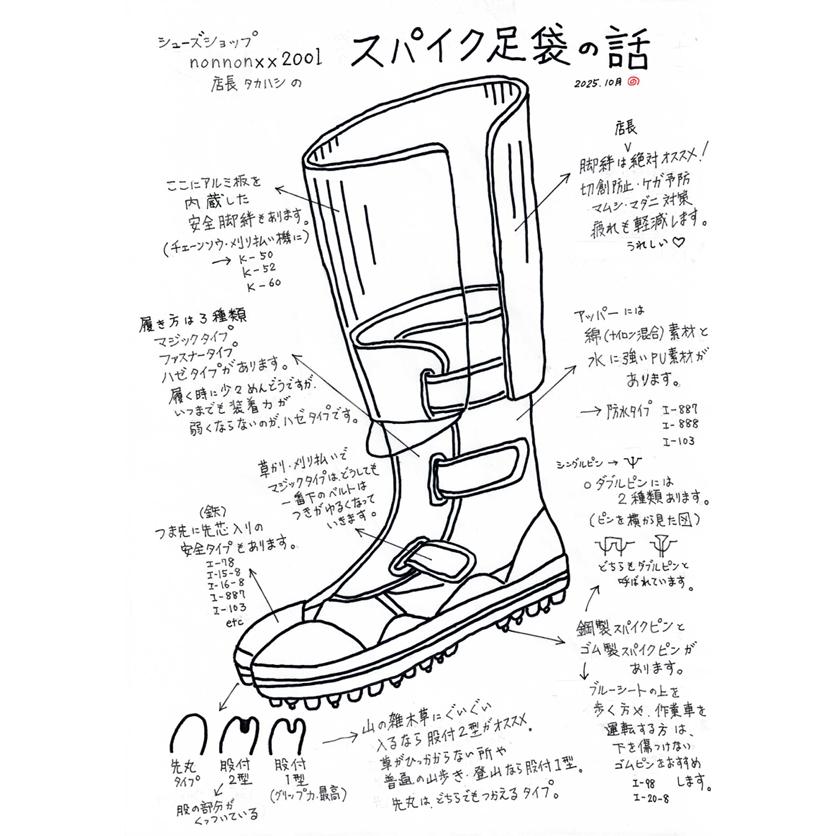 シューズショップ
nonnonxx2001
店長 タカハシ の
スパイク足袋の話
2025.10月
店長
脚絆は絶対オススメ!
切創防止・ケガ予防
マムシ・マダニ対策
疲れも軽減します。
うれしい♡
ここにアルミ板を
内蔵した
安全脚絆もあります。
(チェーンソウ・刈り払い機に)
→ K-50
K-52
K-60
履き方は3種類
マジックタイプ。
ファスナータイプ。
ハゼタイプがあります。
履く時に少々めんどうですが、
いつまでも装着力が
弱くならないのが、ハゼタイプです。
アッパーには
綿(ナイロン混合)素材と
水に強いPU素材が
あります。
→防水タイプ I-887
I-888
I-103
草かり・刈り払いで
マジックタイプは、どうしても
一番下のベルトは
つきがゆるくなって
いきます。
シングルピン→
○ダブルピンには
2種類あります。
(ピンを横から見た図)
どちらもダブルピンと
呼ばれています。
(鉄)
つま先に先芯入りの
安全タイプもあります。
I-78
I-15-8
I-16-8
I-887
I-103
etc
鋼製スパイクピンと
ゴム製スパイクピンが
あります。
ブルーシートの上を
歩く方や、作業車を
運転する方は、
下を傷つけない
ゴムピンをおすすめ
します。
I-98
I-20-8
先丸
タイプ
股付
2型
股付
1型
(グリップ力最高)
股の部分が
くっついている
山の雑木草にぐいぐい
入るなら股付2型がオススメ。
草がひっかからない所や
普通の山歩き・登山なら股付1型。
先丸は、どちらでもつかえるタイプ。